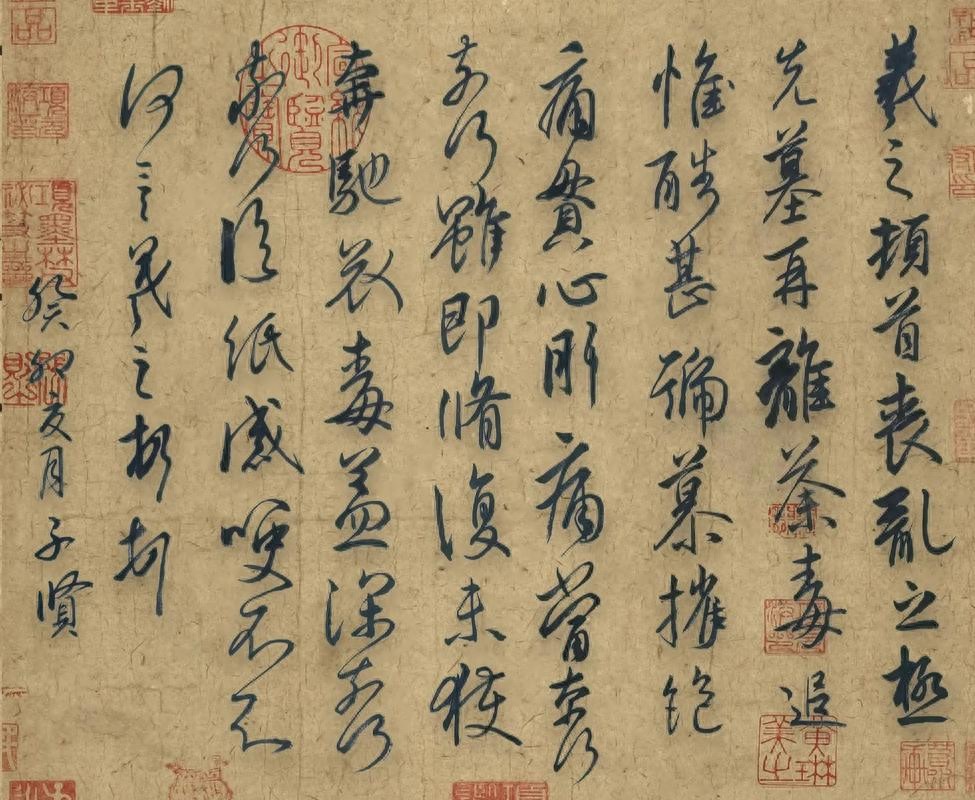 羲之頓首喪亂之極
先墓再離荼毒追
惟酷甚號慕摧絕
痛貫心肝痛當奈何
奈何雖即脩復未獲
奔馳哀毒益深奈何
奈何臨紙感哽不知
何言羲之頓首頓首
癸卯夏月子賢